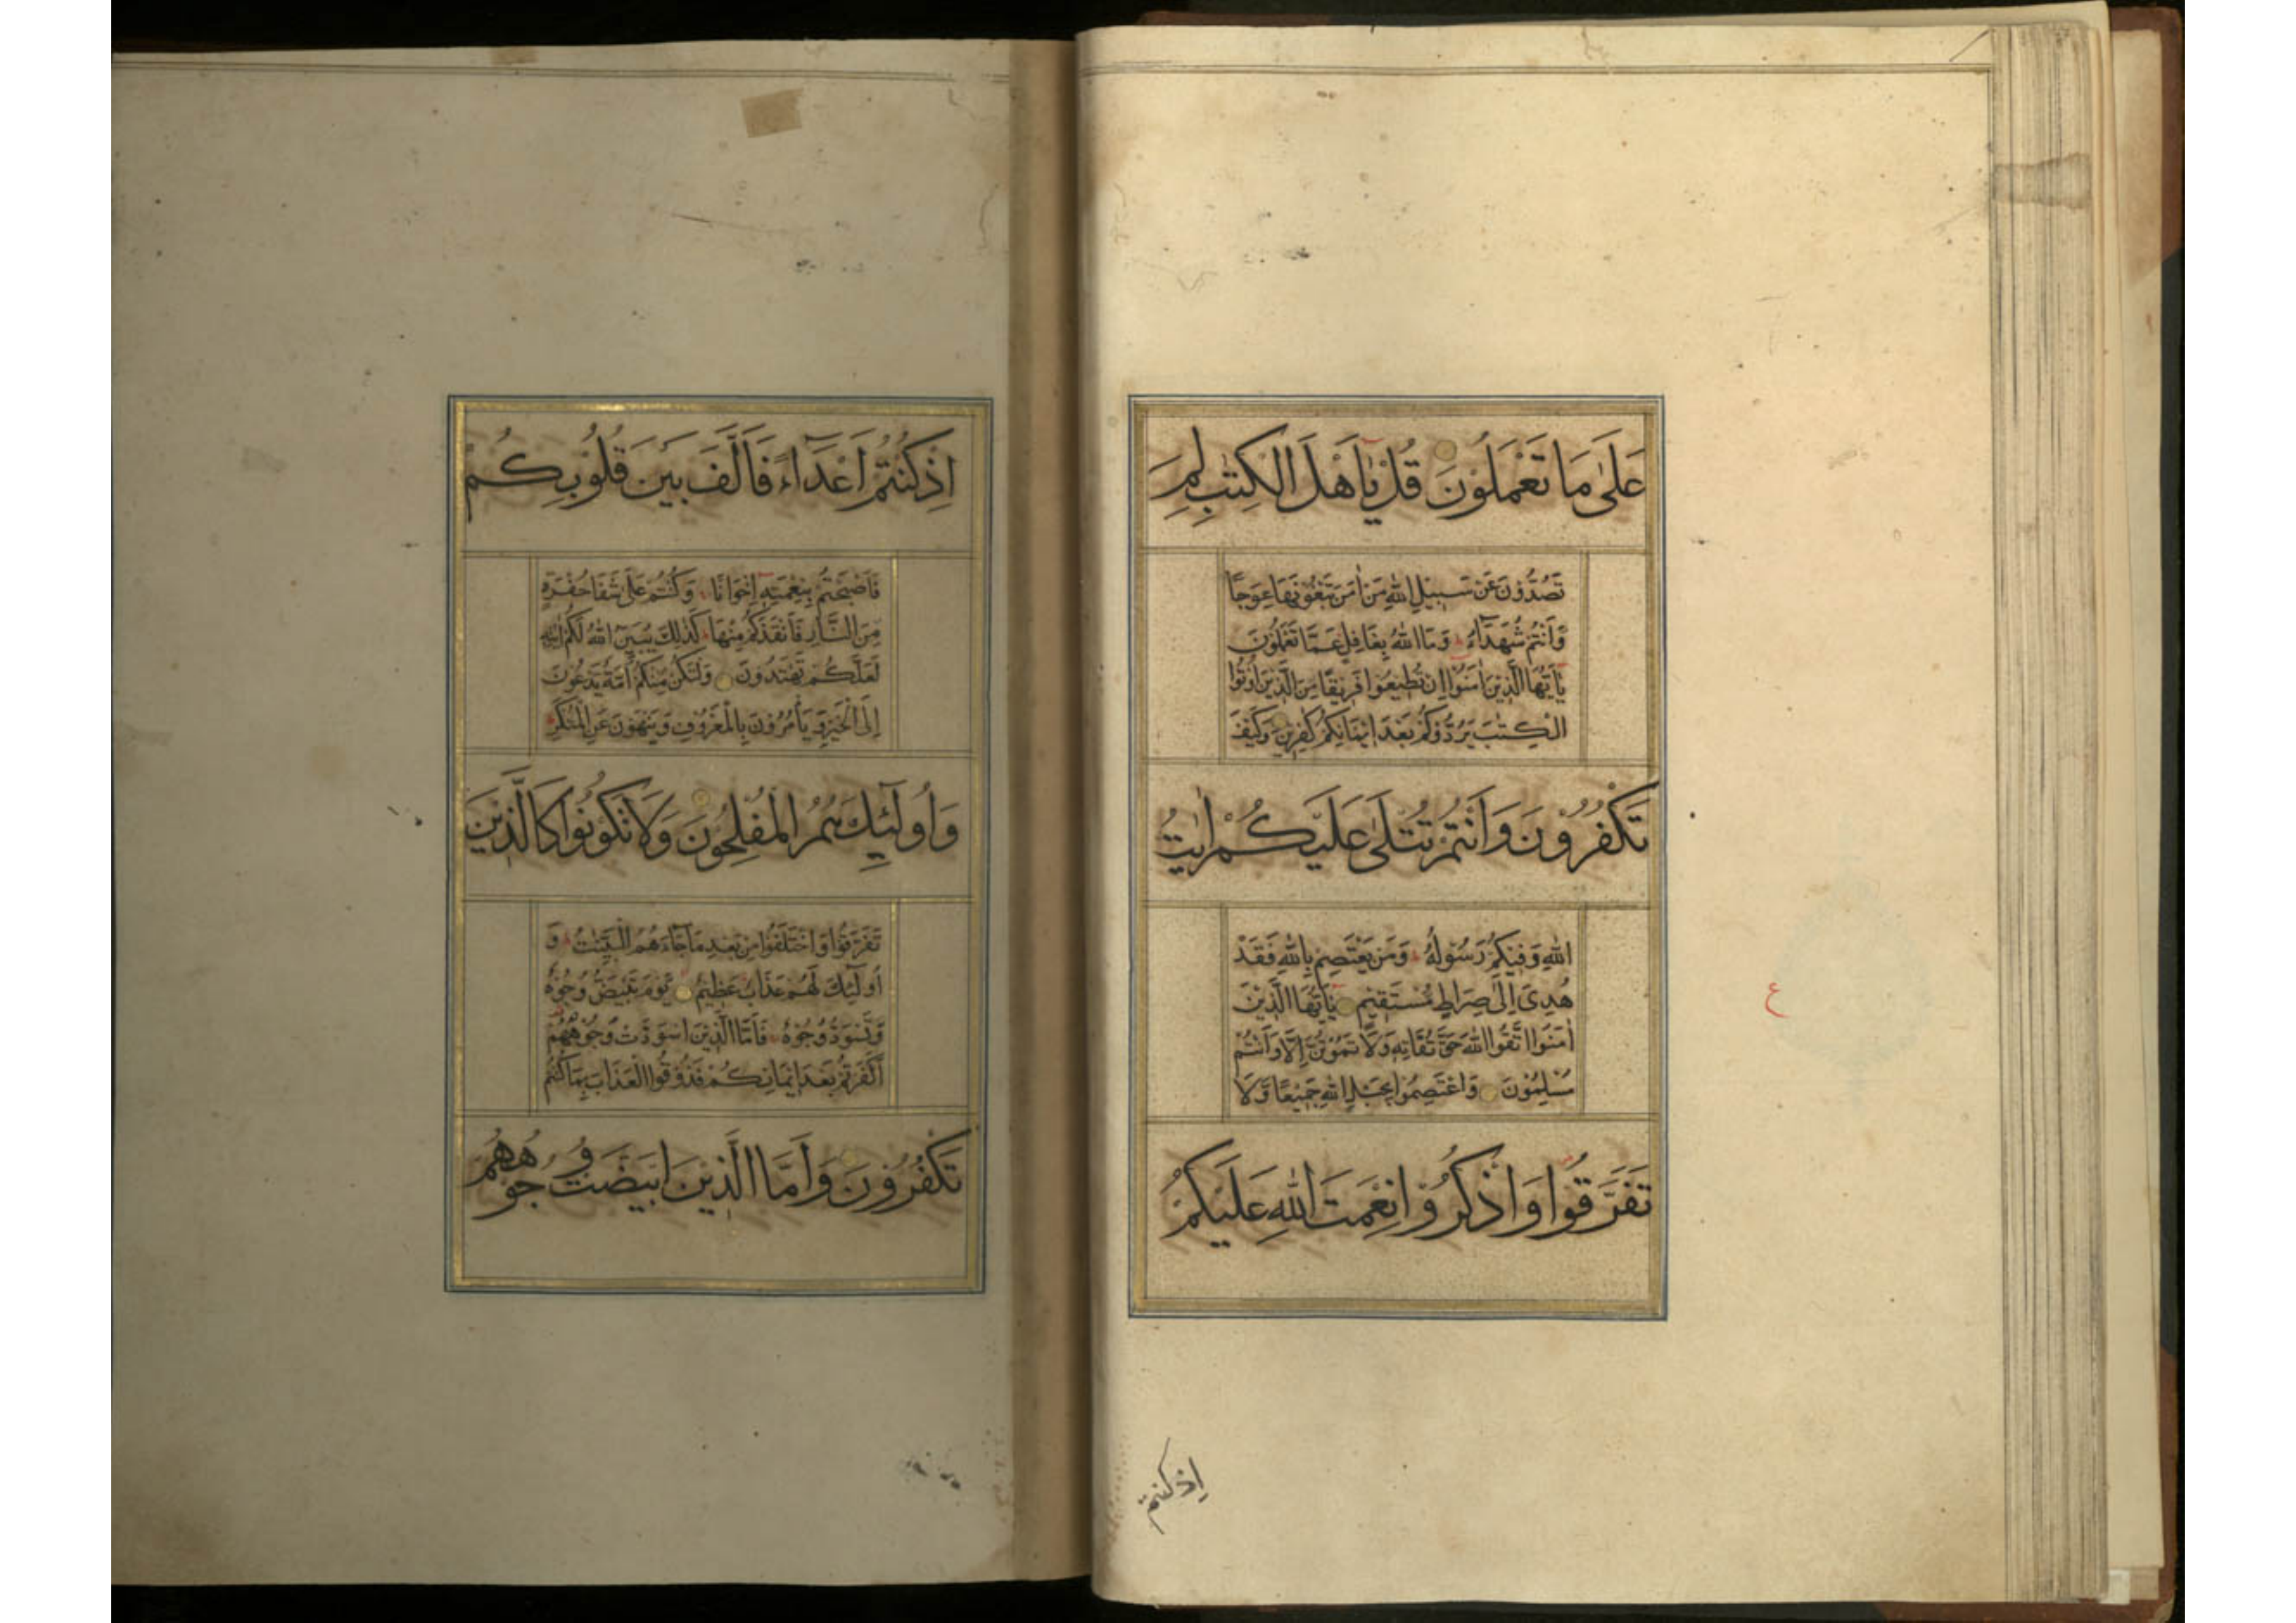 عَلَىٰ مَا تَعْمَلُوْنَ قُلْ يٰٓاَهْلَ الْكِتٰبِ لِمَ
تَصُدُّوْنَ عَنْ سَبِيْلِ اللهِ مَنْ اٰمَنَ تَبْغُوْنَهَا عِوَجًا
وَاَنْتُمْ شُهَدَآءُ وَمَا اللهُ بِغَافِلٍ عَمَّا تَعْمَلُوْنَ
يٰٓاَيُّهَا الَّذِيْنَ اٰمَنُوْٓا اِنْ تُطِيْعُوْا فَرِيْقًا مِنَ الَّذِيْنَ اُوْتُوا
الْكِتٰبَ يَرُدُّوْكُمْ بَعْدَ اِيْمَانِكُمْ كٰفِرِيْنَ وَكَيْفَ
تَكْفُرُوْنَ وَاَنْتُمْ تُتْلٰى عَلَيْكُمْ اٰيٰتُ
اللهِ وَفِيْكُمْ رَسُوْلُهُ وَمَنْ يَعْتَصِمْ بِاللهِ فَقَدْ
هُدِىَ اِلٰى صِرَاطٍ مُسْتَقِيْمٍ يٰٓاَيُّهَا الَّذِيْنَ
اٰمَنُوا اتَّقُوا اللهَ حَقَّ تُقَاتِهِ وَلَا تَمُوْتُنَّ اِلَّا وَاَنْتُمْ
مُسْلِمُوْنَ وَاعْتَصِمُوْا بِحَبْلِ اللهِ جَمِيْعًا وَلَا
تَفَرَّقُوْا وَاذْكُرُوْا نِعْمَتَ اللهِ عَلَيْكُمْ
ع
اذ كنتم
اِذْ كُنْتُمْ اَعْدَآءً فَاَلَّفَ بَيْنَ قُلُوْبِكُمْ
فَاَصْبَحْتُمْ بِنِعْمَتِهٖٓ اِخْوَانًا وَكُنْتُمْ عَلٰى شَفَا حُفْرَةٍ
مِنَ النَّارِ فَاَنْقَذَكُمْ مِنْهَا كَذٰلِكَ يُبَيِّنُ اللهُ لَكُمْ اٰيٰتِهِ
لَعَلَّكُمْ تَهْتَدُوْنَ وَلْتَكُنْ مِنْكُمْ اُمَّةٌ يَدْعُوْنَ
اِلَى الْخَيْرِ وَيَأْمُرُوْنَ بِالْمَعْرُوْفِ وَيَنْهَوْنَ عَنِ الْمُنْكَرِ
وَاُولٰٓئِكَ هُمُ الْمُفْلِحُوْنَ وَلَا تَكُوْنُوْا كَالَّذِيْنَ
تَفَرَّقُوْا وَاخْتَلَفُوْا مِنْ بَعْدِ مَا جَآءَهُمُ الْبَيِّنٰتُ وَ
اُولٰٓئِكَ لَهُمْ عَذَابٌ عَظِيْمٌ يَوْمَ تَبْيَضُّ وُجُوْهٌ
وَتَسْوَدُّ وُجُوْهٌ فَاَمَّا الَّذِيْنَ اسْوَدَّتْ وُجُوْهُهُمْ
اَكَفَرْتُمْ بَعْدَ اِيْمَانِكُمْ فَذُوْقُوا الْعَذَابَ بِمَا كُنْتُمْ
تَكْفُرُوْنَ وَاَمَّا الَّذِيْنَ ابْيَضَّتْ وُجُوْهُهُمْ